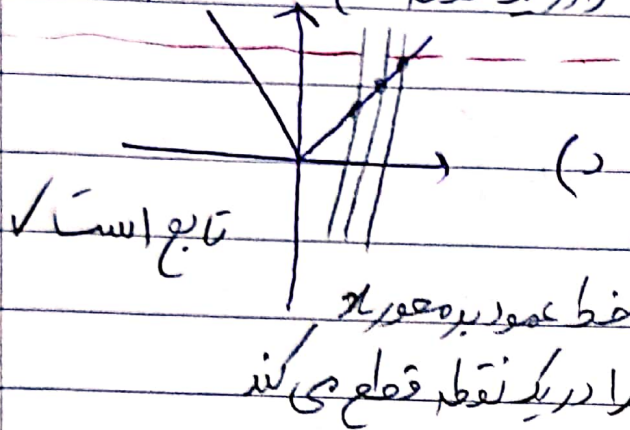 را در یک
د)
تابع است ✓
خط عمود بر محور x
را در یک نقطه قطع می‌کند